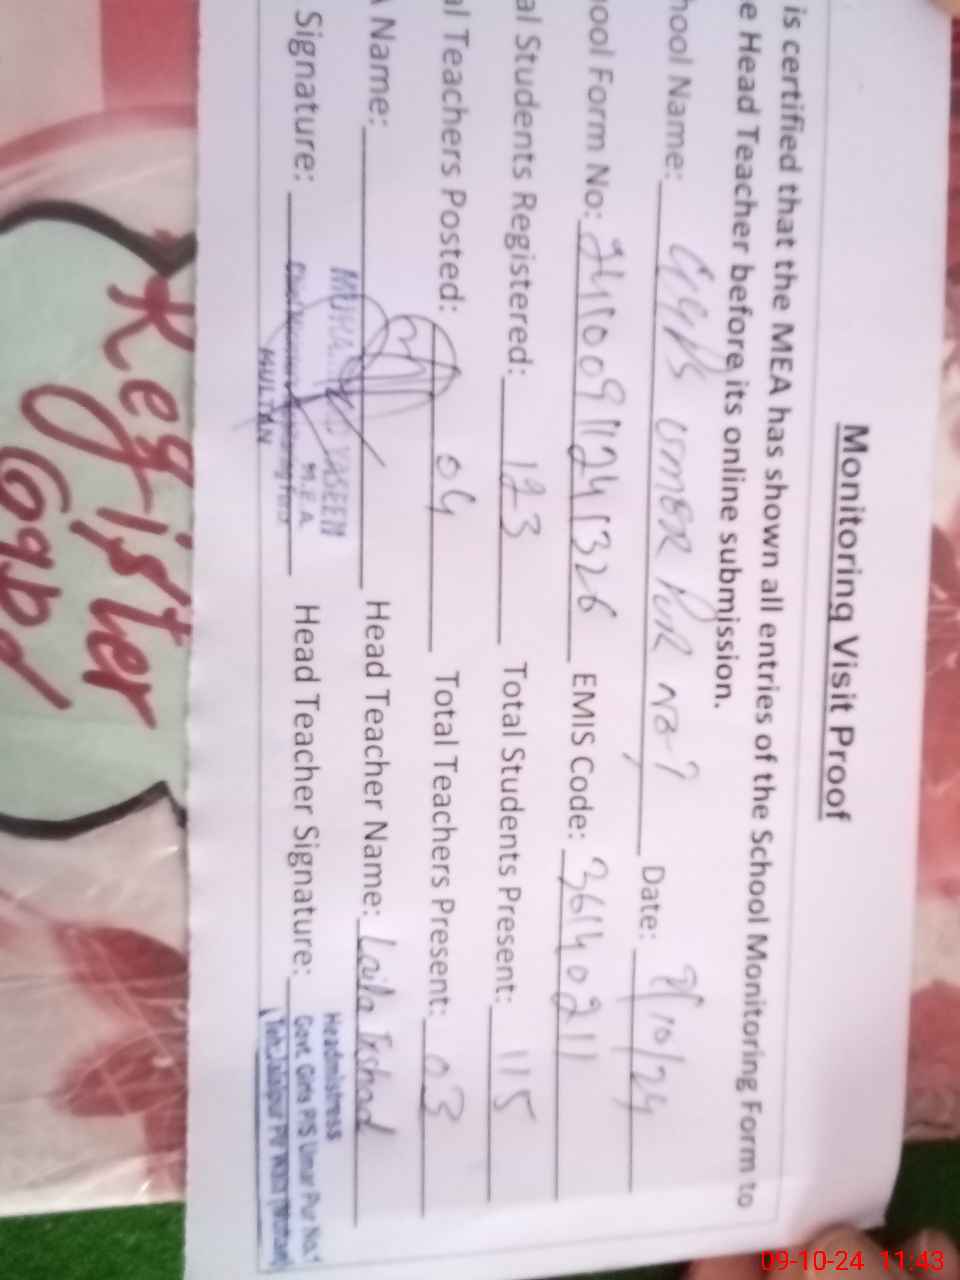 Monitoring Visit Proof
is certified that the MEA has shown all entries of the School Monitoring Form to
e Head Teacher before its online submission.
hool Name: GGPS UMER PUR NO-1 Date: 9/10/24
ool Form No: 24100911241326 EMIS Code: 36140211
al Students Registered: 123 Total Students Present: 115
al Teachers Posted: 04 Total Teachers Present: 03
A Name: Head Teacher Name: Laila Irshad
Signature: Head Teacher Signature:
YASEEN
M.E.A.
MULTAN
Headmistress
Govt. Girls P/S Umar Pur No.1
Teh: Jalalpur PW
Register
09-10-24 11:43